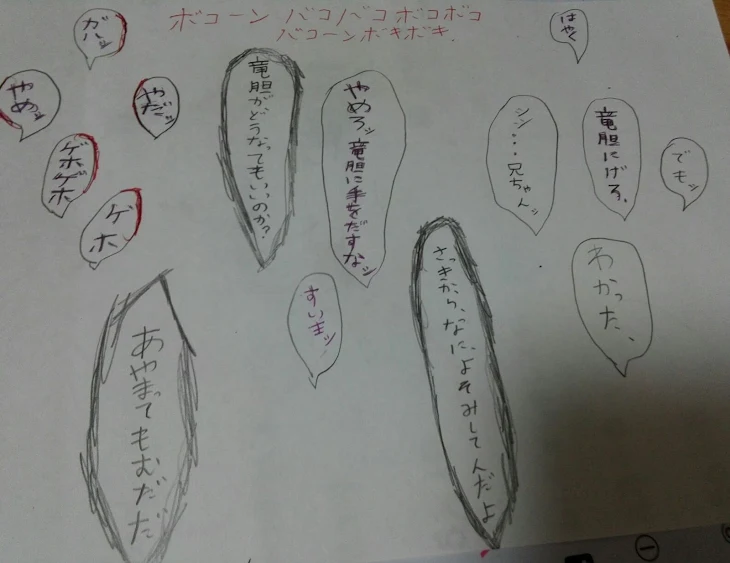 ボコーン バコバコ ボコボコ
バコーンボキボキ.
はやく
でもッ
竜胆にげろ。
シン…兄ちゃんッ
わかった、
やめろッ竜胆に手をだすなッ
竜胆がどうなってもいいのか?
さっきから、なに、よそみしてんだよ
すいまッ
ガハッ
やだッ
やめッ
ゲホゲホ
ゲホ
あやまってもむだだ